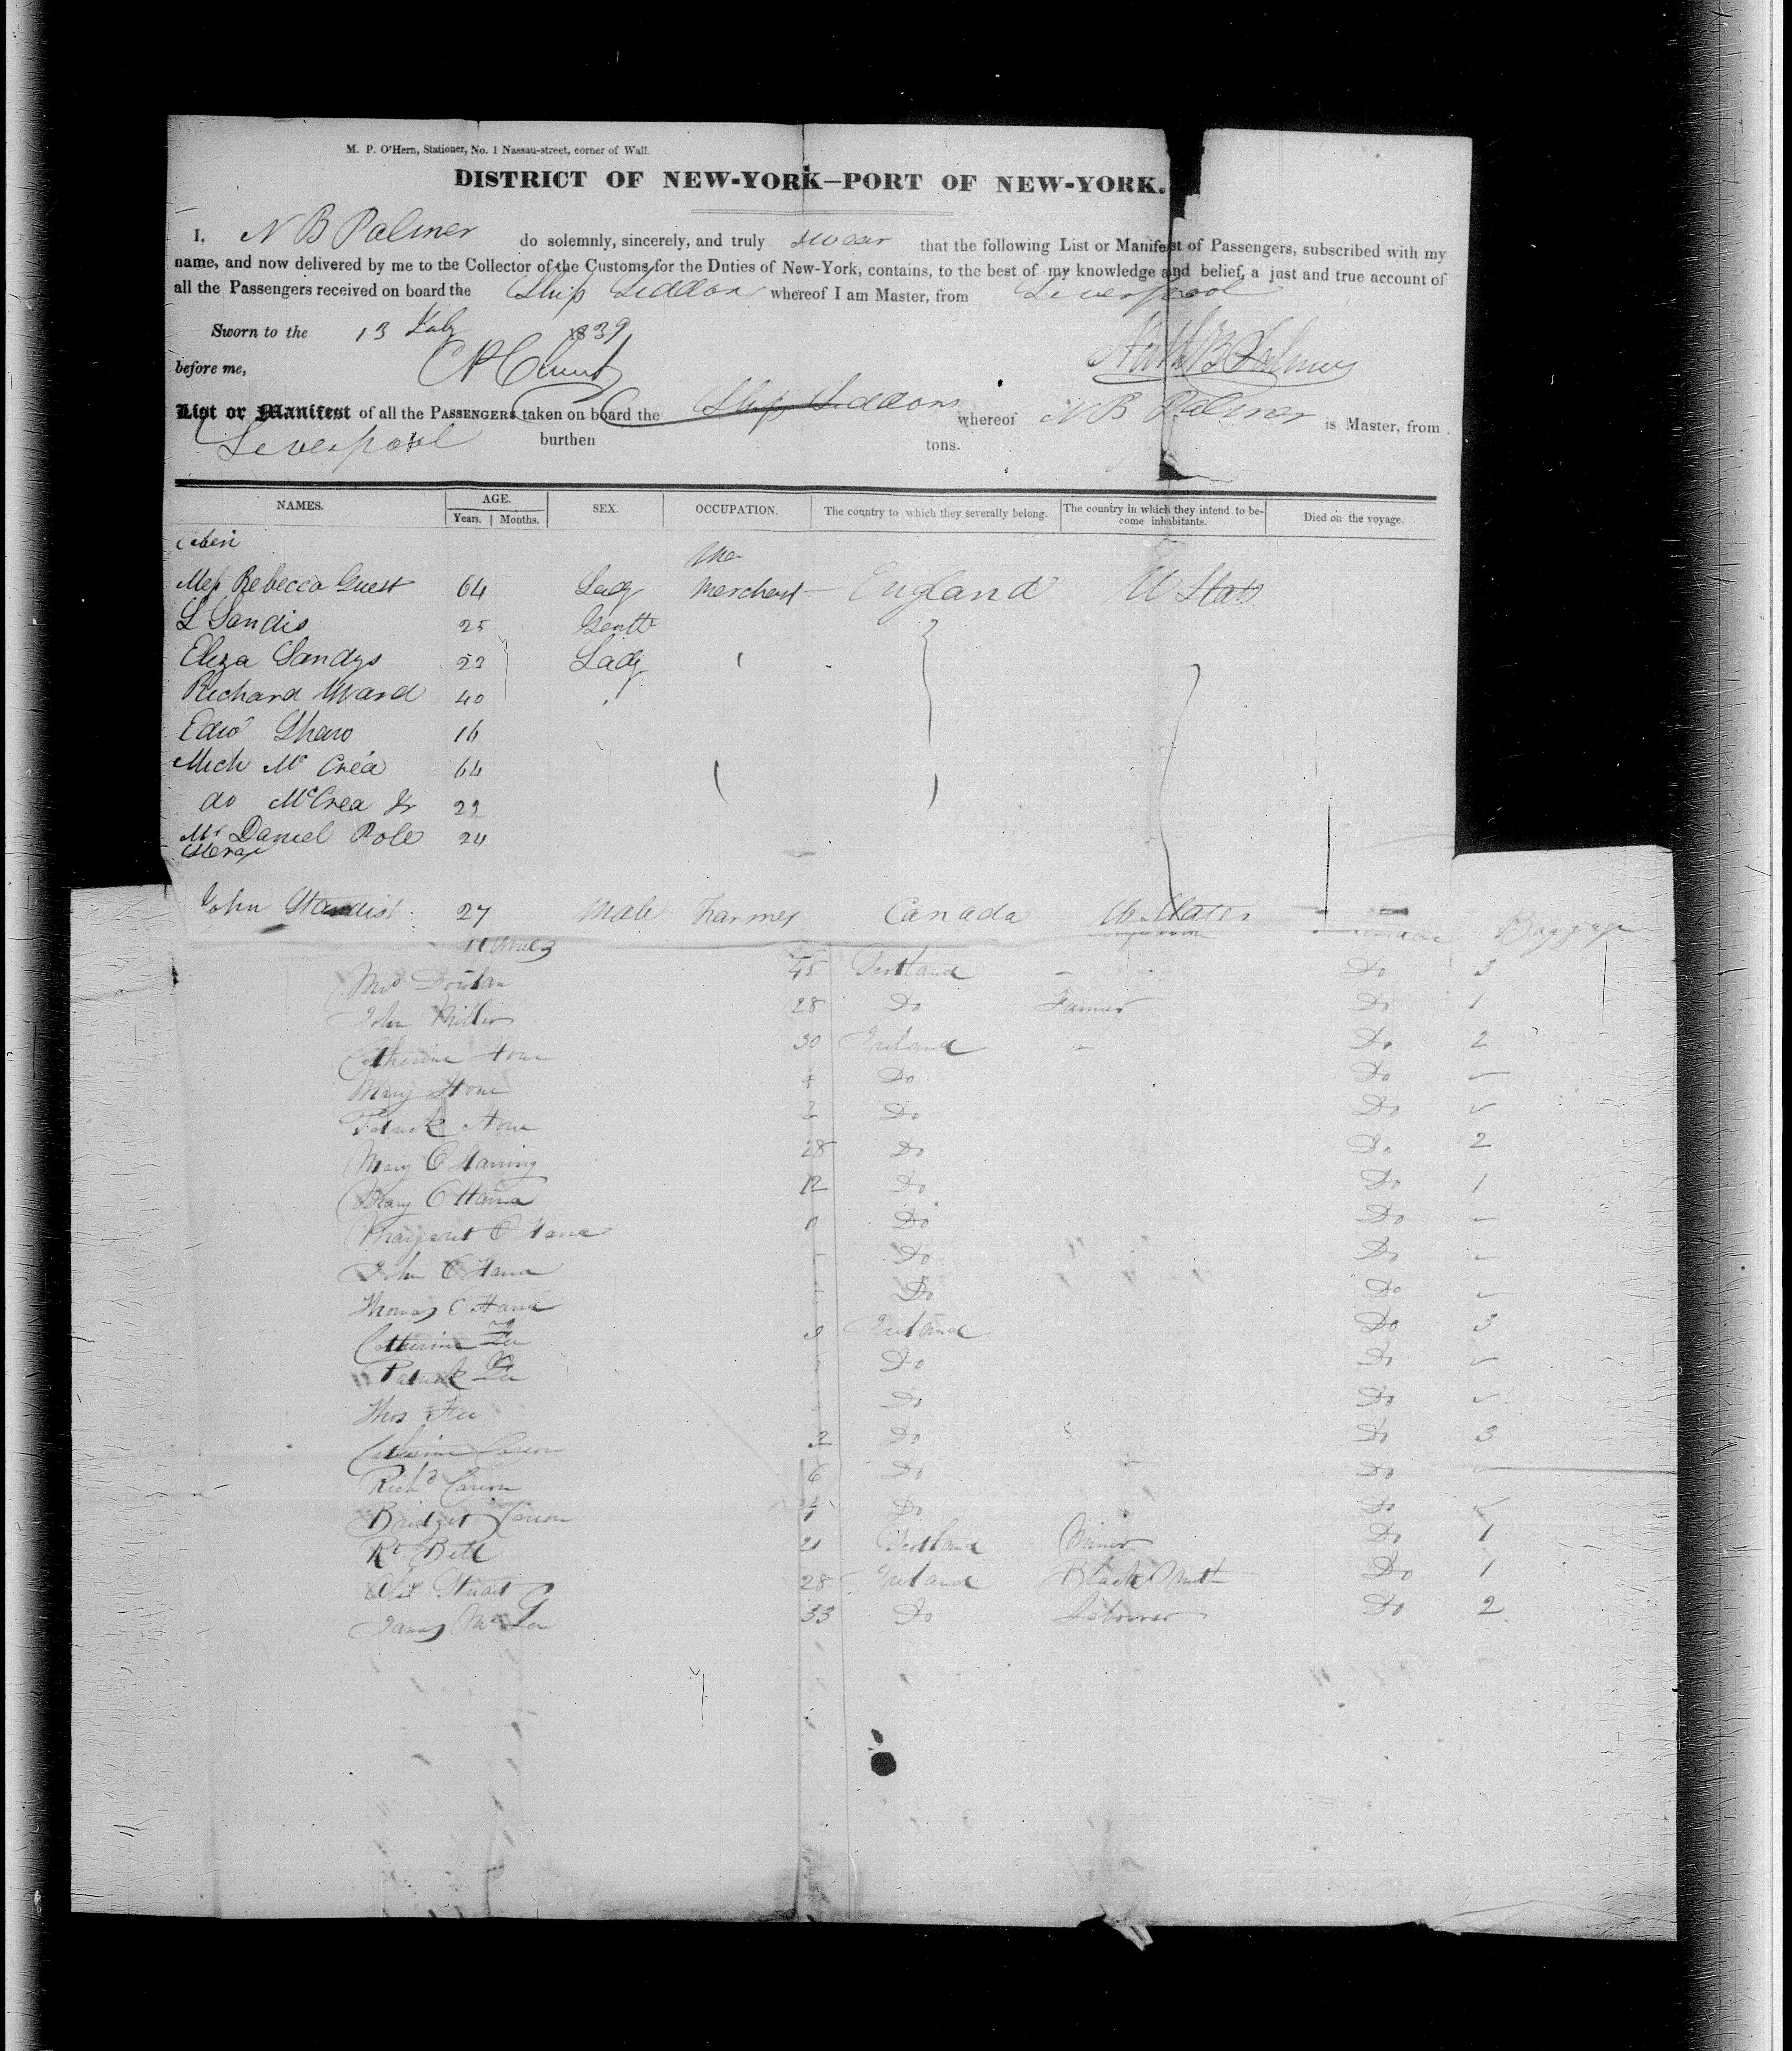 M. P. O'Hern, Stationer, No. 1 Nassau-street, corner of Wall.
DISTRICT OF NEW-YORK—PORT OF NEW-YORK.
I, N B Palmer do solemnly, sincerely, and truly swear that the following List or Manifest of Passengers, subscribed with my
name, and now delivered by me to the Collector of the Customs for the Duties of New-York, contains, to the best of my knowledge and belief, a just and true account of
all the Passengers received on board the Ship Siddons whereof I am Master, from Liverpool
Sworn to the 13 July 1839
before me, Nath B Palmer
List or Manifest of all the PASSENGERS taken on board the Ship Siddons whereof N B Palmer is Master, from
Liverpool burthen tons.
NAMES. AGE. SEX. OCCUPATION. The country to which they severally belong. The country in which they intend to be- Died on the voyage.
Years. Months. come inhabitants.
Cabin
Rebecca Guest 64 Lady Merchant England U States
L Sandis 25 Gentn
Eliza Sandys 23 Lady
Richard Ward 40
Edwd Shaw 16
Mich Mc Crea 64
do McCrea Jr 22
Mr Daniel Pole 24
Sterage
John Standish 27 Male Farmer Canada U. States
Baggage
Mrs 45 Scotland - Do 3
John Miller 28 Do Farmer Do 1
Catherine 30 Ireland Do 2
Mary 4 Do Do
Patrick 2 Do Do
Mary 28 Do Do 2
Mary O Hana 12 Do Do 1
Margaret O Hana Do Do
John O Hana Do Do
Thomas O Hana Do Do
Catherine Fee Ireland Do 3
Patrick Fee Do Do
Thos Fee Do Do
Catherine Carson Do Do 3
Richd Carson 6 Do Do
Bridget Carson Do Do
Rt Bell 21 Scotland Miner Do 1
Stuart 28 Ireland Black Smith Do 1
James Mc 33 Do Labourer Do 2